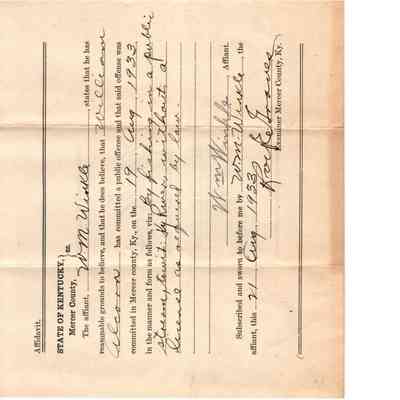 Affidavit.
STATE OF KENTUCKY, } ss.
Mercer County,
The affiant, WM Winkle states that he has
reasonable grounds to believe, and that he does believe, that William
Alcorn has committed a public offense and that said offense was
committed in Mercer county, Ky., on the 19 Aug 1933
in the manner and form as follows, viz: By fishing in a public
stream, towit: River, without a
license as required by law.
Wm Winkle Affiant.
Subscribed and sworn to before me by WM Winkle the
affiant, this 21 Aug 1933
Examiner Mercer County, Ky.